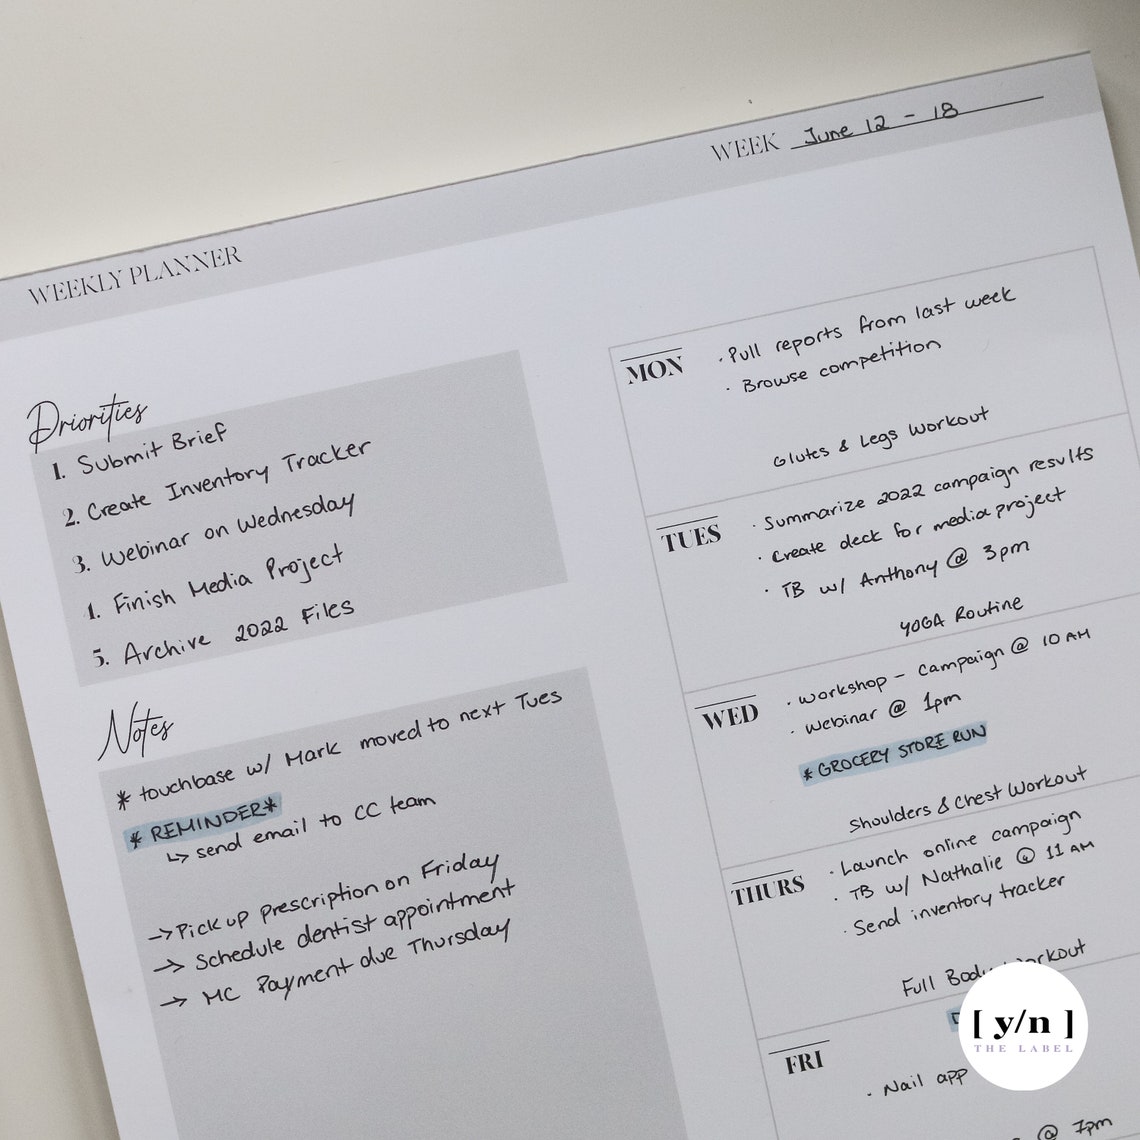 WEEK June 12 - 18
WEEKLY PLANNER
Priorities
1. Submit Brief
2. Create Inventory Tracker
3. Webinar on Wednesday
1. Finish Media Project
5. Archive 2022 Files
Notes
* touchbase w/ Mark moved to next Tues
* REMINDER*
↳ send email to CC team
→ Pick up prescription on Friday
→ Schedule dentist appointment
→ MC Payment due Thursday
MON
· Pull reports from last week
· Browse competition
Glutes & Legs Workout
TUES
· Summarize 2022 campaign results
· Create deck for media project
· TB w/ Anthony @ 3pm
YOGA Routine
WED
· Workshop - Campaign @ 10 AM
· Webinar @ 1pm
* GROCERY STORE RUN
Shoulders & Chest Workout
THURS
· Launch online campaign
· TB w/ Nathalie @ 11 AM
· Send inventory tracker
Full Body Workout
FRI
· Nail app
@ 7pm
[ y/n ]
THE LABEL